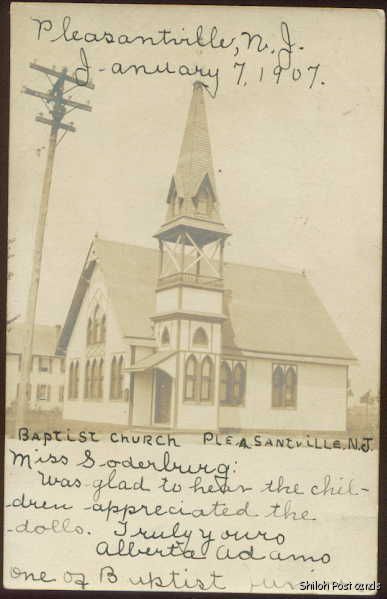 Pleasantville, N.J.
January 7, 1907.
BAPTIST CHURCH PLEASANTVILLE, N.J.
Miss Soderburg:
Was glad to hear the chil-
dren appreciated the
dolls. Truly yours
Alberta Adams
one of Baptist
Shiloh Postcards